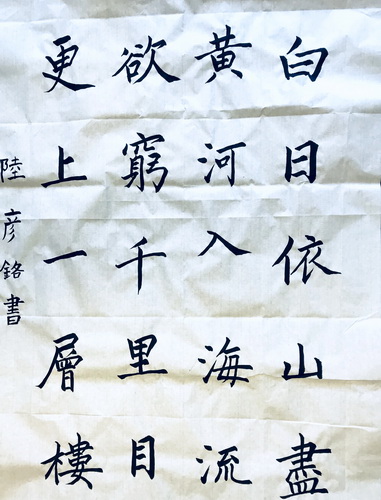 白日依山盡
黃河入海流
欲窮千里目
更上一層樓
陸彦銘書